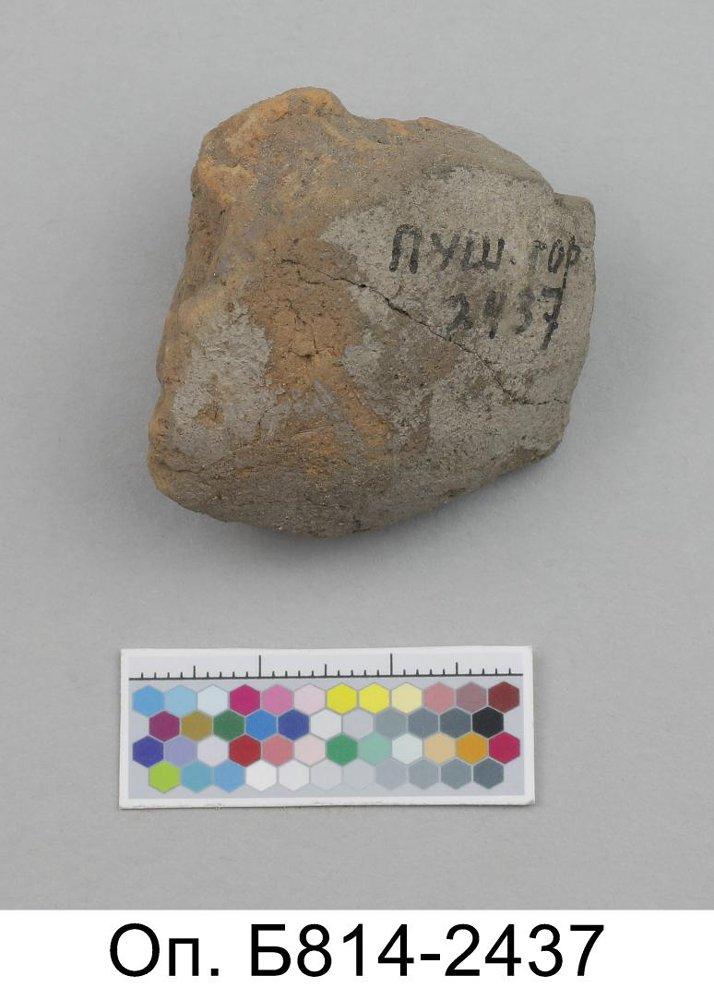 ПУШ. ГОР
2437
Оп. Б814-2437